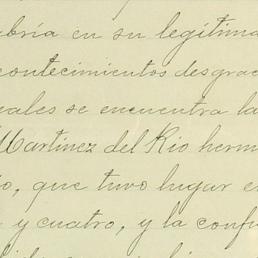 abría en su legítima
contecimientos desgrac
eales se encuentra la
Martínez del Rio herm
o, que tuvo lugar e
y cuatro, y la conf